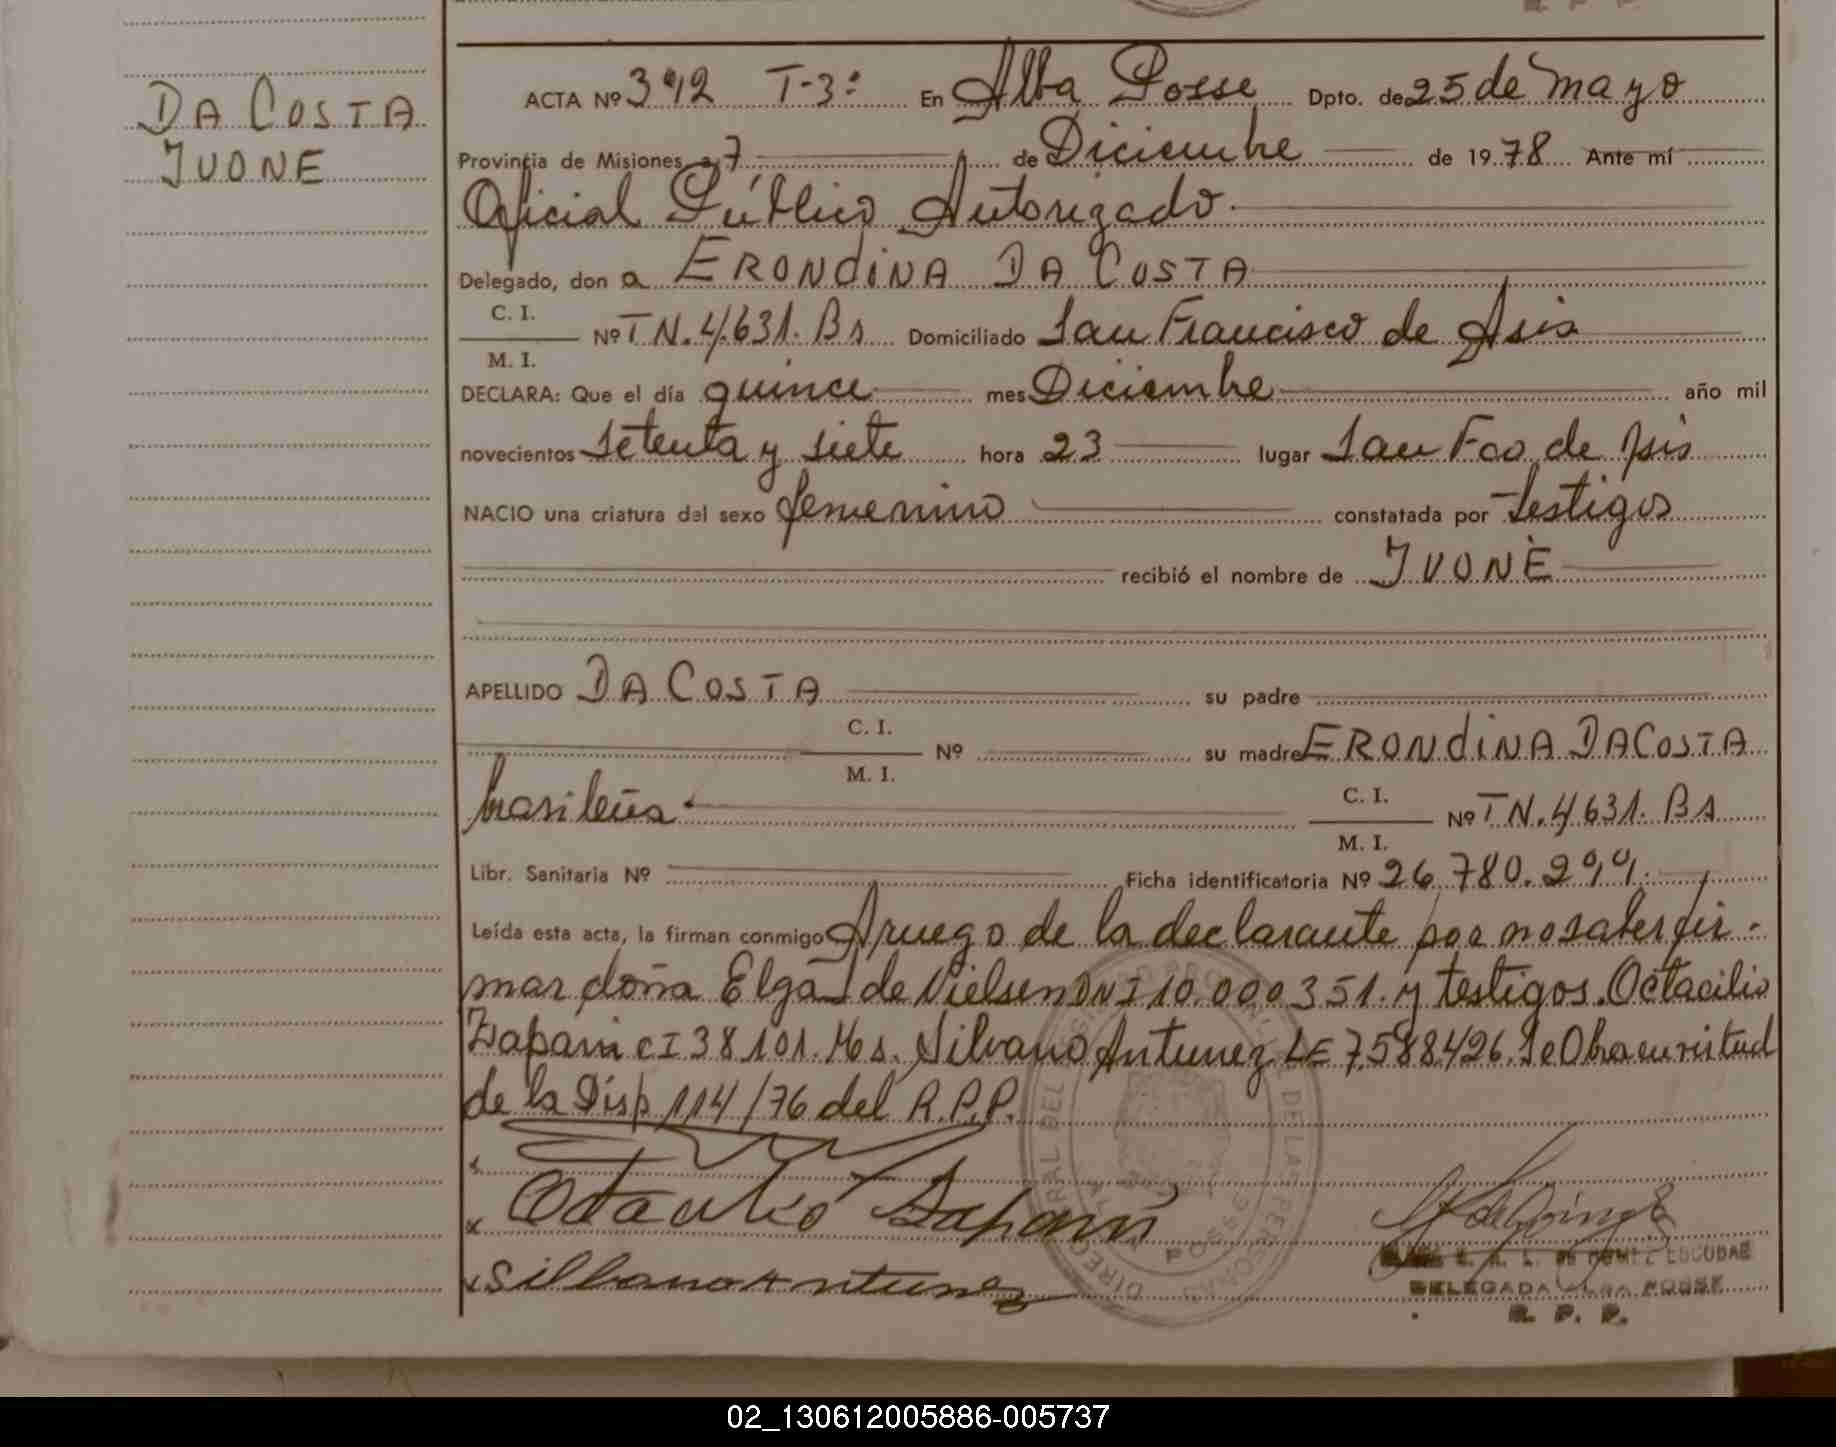 DA COSTA
IVONE
ACTA Nº 392 T-3º En Alba Posse Dpto. de 25 de Mayo
Provincia de Misiones a 7 de Diciembre de 1978 Ante mí
Oficial Público Autorizado
Delegado, don a ERONDINA DA COSTA
C. I.
M. I.
Nº TN. 4.631. Bs Domiciliado San Francisco de Asis
DECLARA: Que el día quince mes Diciembre año mil
novecientos setenta y siete hora 23 lugar San Fco de Asis
NACIO una criatura del sexo femenino constatada por testigos
recibió el nombre de IVONE
APELLIDO DA COSTA su padre
C. I.
M. I.
Nº su madre ERONDINA DA COSTA
brasileña
C. I.
M. I.
Nº TN. 4631. Bs
Libr. Sanitaria Nº Ficha identificatoria Nº 26.780.299.
Leída esta acta, la firman conmigo A ruego de la declarante por no saber fir-
mar doña Elga de Nielsen DNI 10.000351. y testigos. Octacilio
Zaparin CI 38101. Ms. Silvano Antunez LE 7.588426. Se Obra en virtud
de la Disp 114/76 del R.P.P.
Silbano Antunez
DE GOMEZ ESCOBAR
DELEGADA ALBA POSSE
R. P. P.
02_130612005886-005737